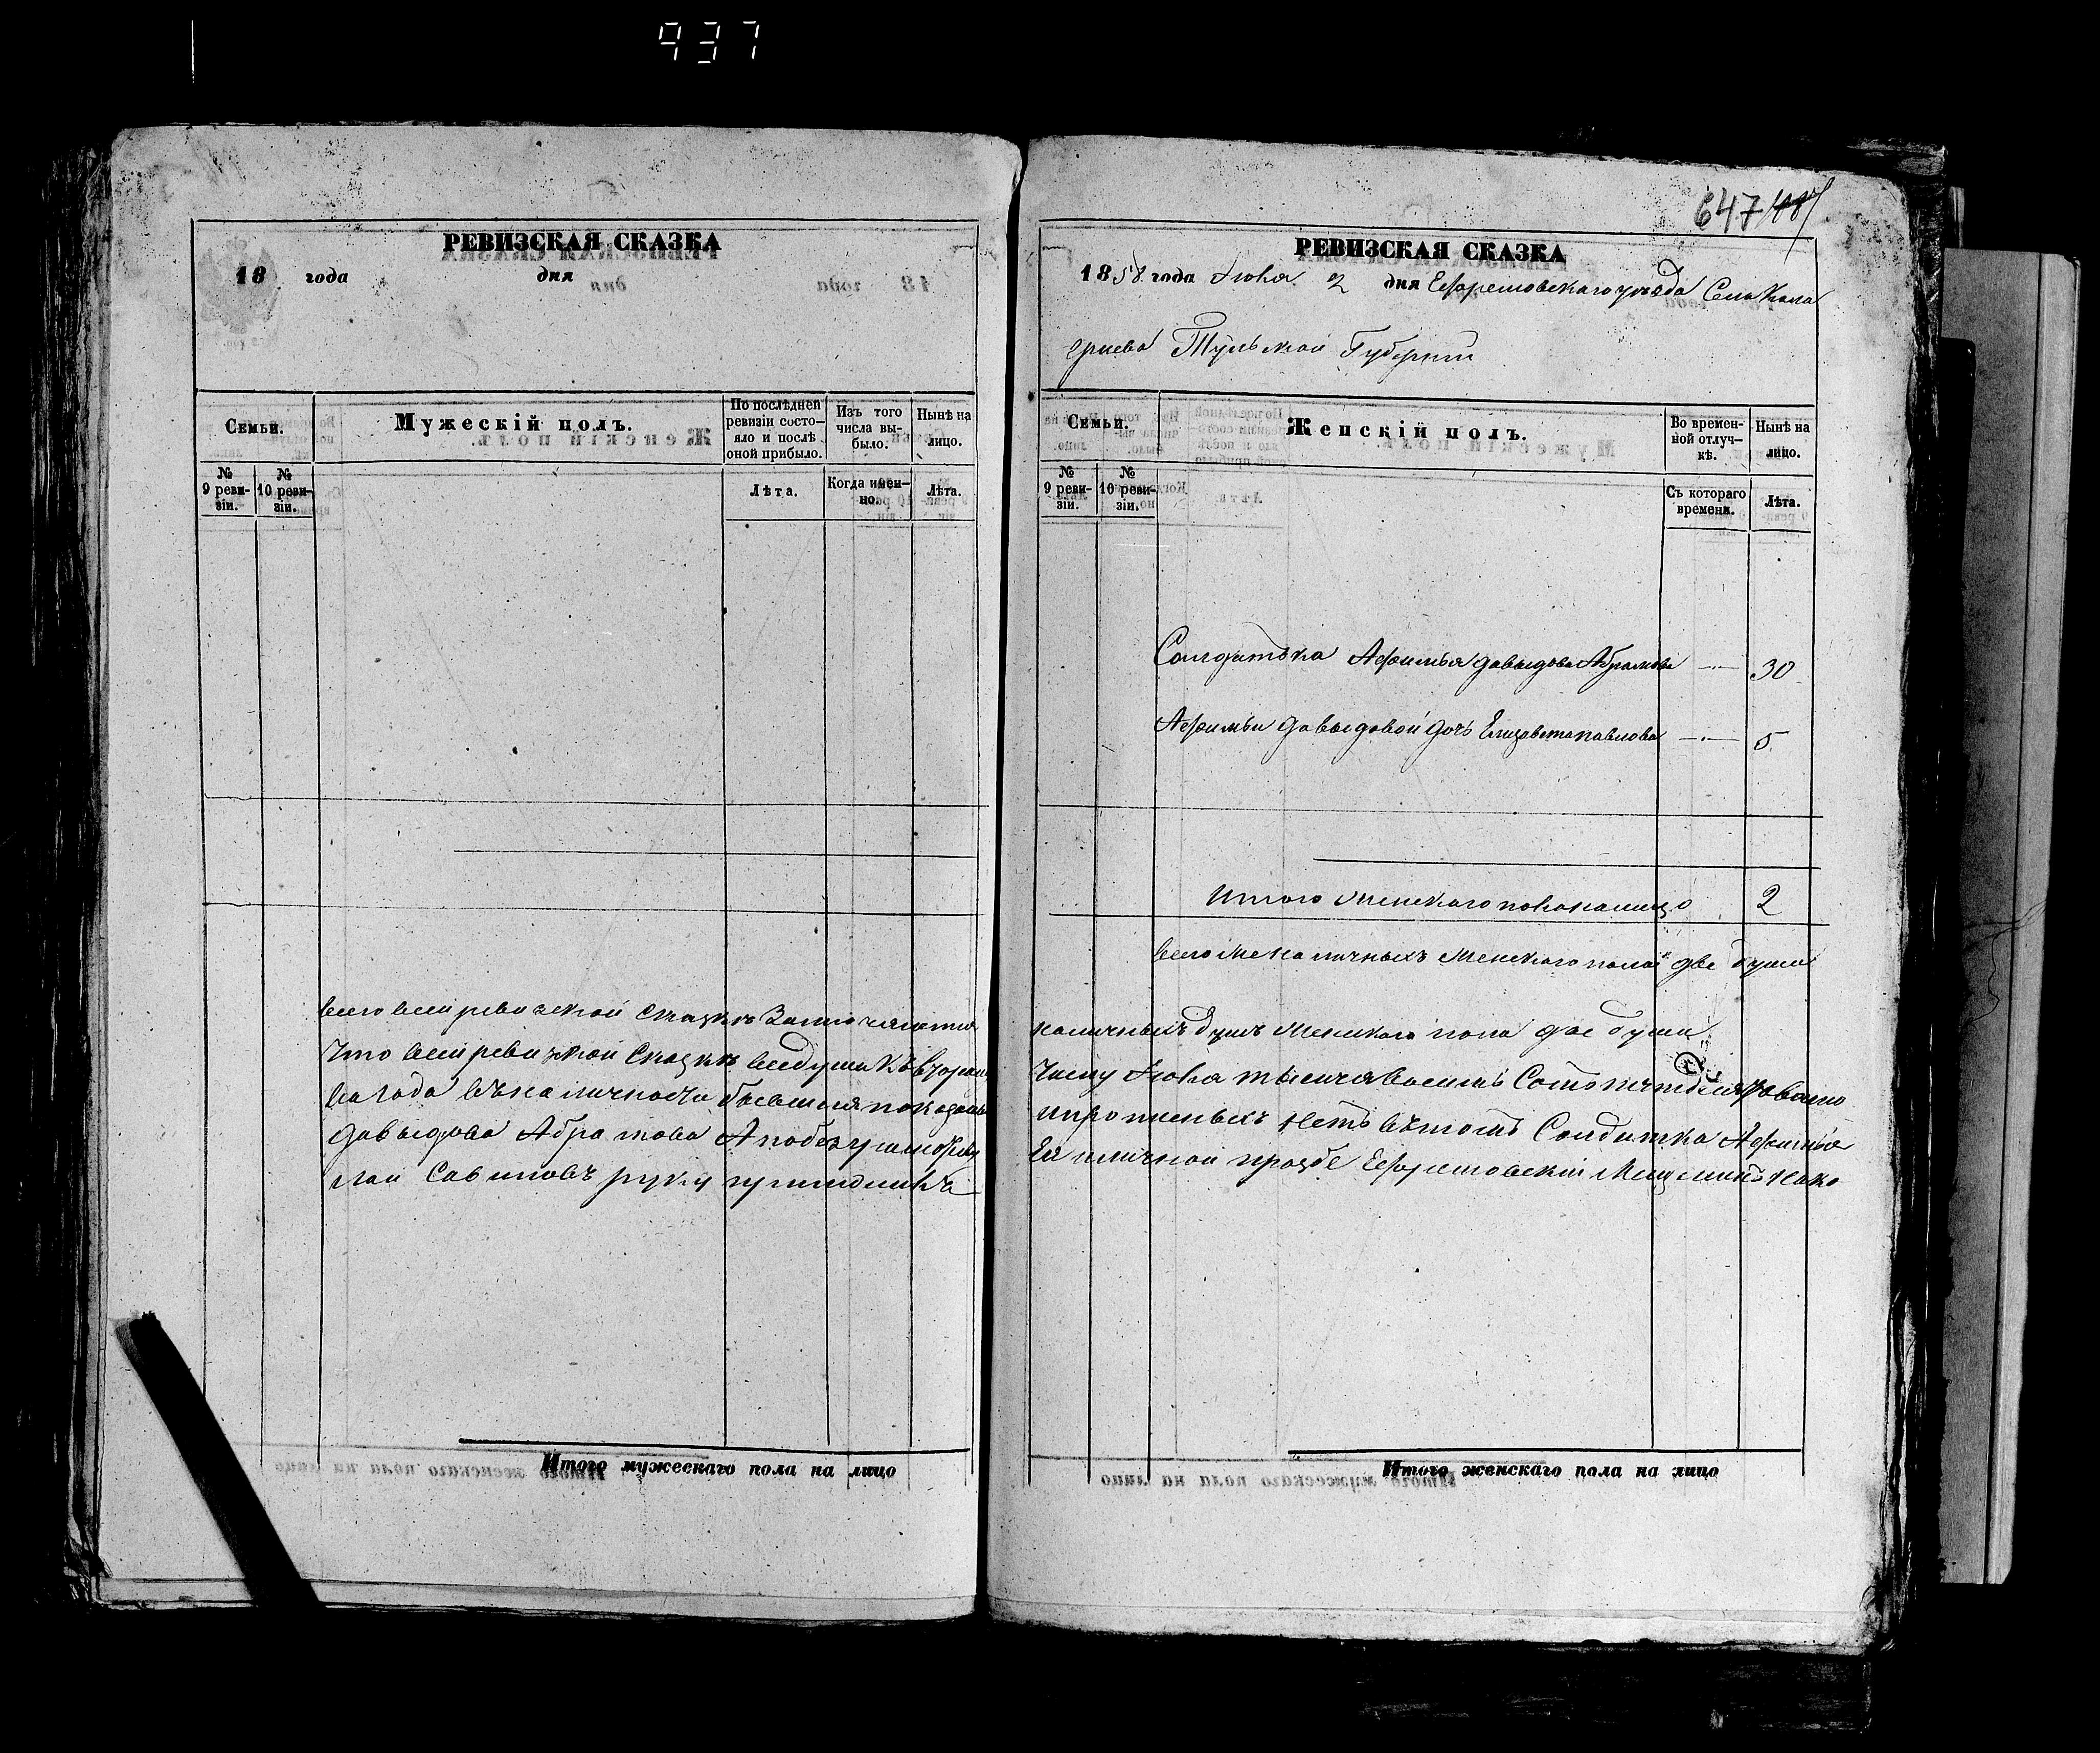 937
РЕВИЗСКАЯ СКАЗКА
18 года дня
Семьи.
Мужескій полъ.
По послѣдней ревизіи состо-
яло и послѣ оной прибыло.
Изъ того числа вы-
было.
Нынѣ на лицо.
№ 9 реви-
зіи.
№ 10 реви-
зіи.
Лѣта.
Когда имен-
но.
Лѣта.
всего всей ревизской сказкѣ
что всей ревизской сказкѣ все души
ва года въ наличности
Давыдова Абрамова
лай Савиновъ руку
Итого мужескаго пола на лицо
647
РЕВИЗСКАЯ СКАЗКА
1858 года Июня 2 дня Ефремовскаго уѣзда Села Кала
Тульской Губернии
Семьи.
Женскій полъ.
Во времен-
ной отлуч-
кѣ.
Нынѣ на лицо.
№ 9 реви-
зіи.
№ 10 реви-
зіи.
Съ котораго времени.
Лѣта.
Солдатка Афимья Давыдова Абрамова — 30
Афимьи Давыдовой дочь Елизавета Павлова — 5
Итого женскаго пола на лицо 2
всего же наличныхъ женскаго пола две души
наличныхъ душъ женскаго пола две души
числу Июня тысяча восемь Сотъ
нетъ въ томъ Солдатка Афимья
Ея личной прозбе Ефремовский Мещанинъ Нико
Итого женскаго пола на лицо